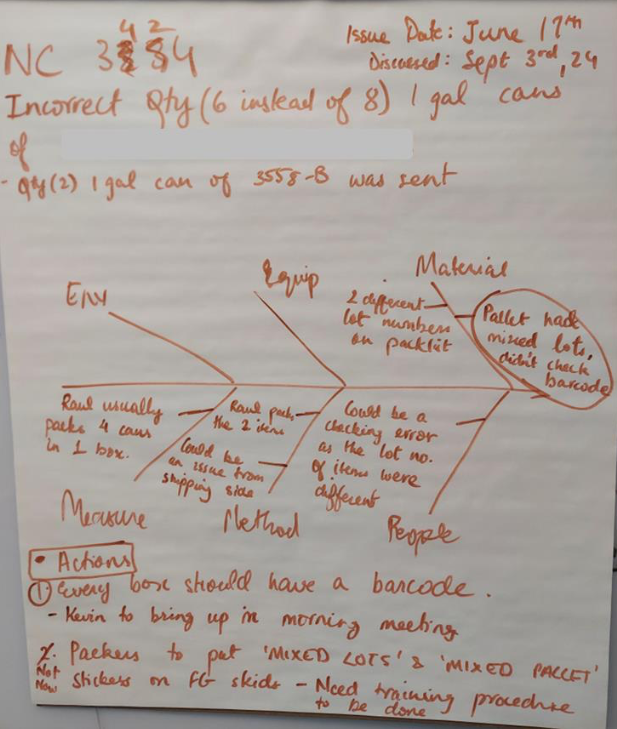 NC 34284
Issue Date: June 17th
Discussed: Sept 3rd, 24
Incorrect Qty (6 instead of 8) 1 gal cans
of
- Qty (2) 1 gal can of 3558-B was sent
Env
Equip
Material
2 different
lot numbers
on packlist
Pallet had
mixed lots,
didn't check
barcode
Raul usually
packs 4 cans
in 1 box.
Raul packs
the 2 items
Could be
an issue from
shipping side
Could be a
checking error
as the lot no.
of items were
different
Measure
Method
People
• Actions
① Every box should have a barcode.
- Kevin to bring up in morning meeting
2. Packers to put 'MIXED LOTS' & 'MIXED PALLET'
Not
Now
stickers on FG skids - Need training procedure
to be done